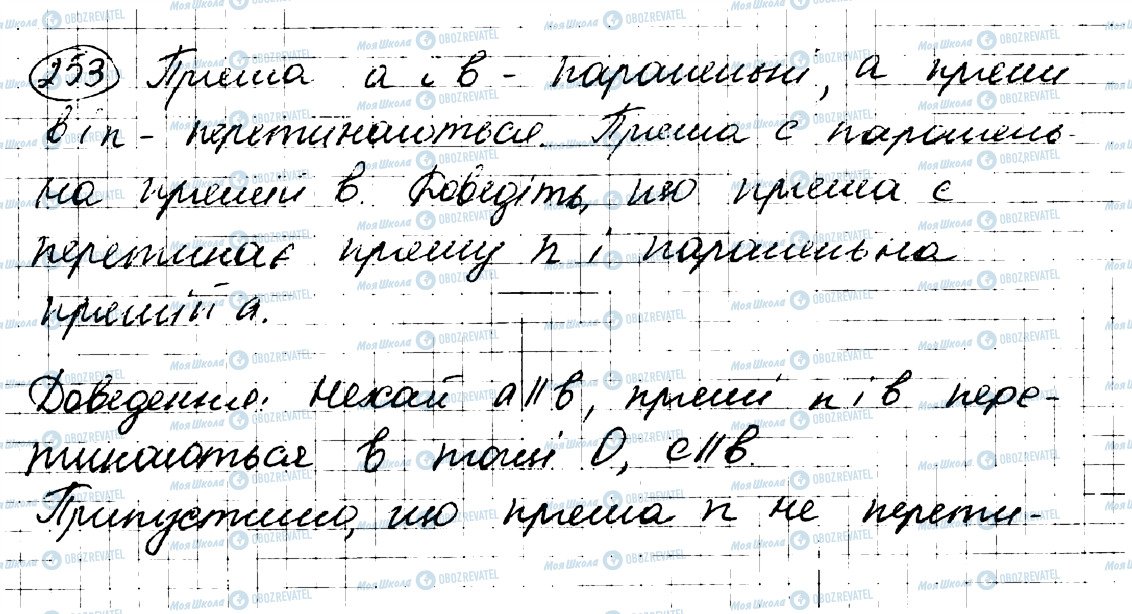 253 Пряма a і b - паралельні, а прями
b і n - перетинаються. Пряма c паралель-
на прямій b. Доведіть, що пряма c
перетинає пряму n і паралельна
прямій a.
Доведення: Нехай a||b, прямі n і b пере-
тинаються в точці O, c||b.
Припустимо, що пряма n не перети-